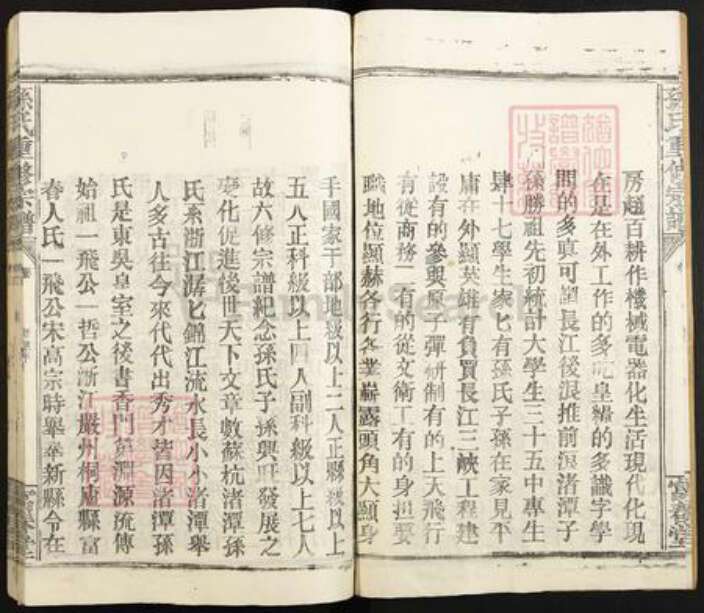 孫氏重修宗譜
房超百耕作機械電器化生活現代化現
在是在外工作的多吃皇糧的多識字學
問的多真可謂長江後浪推前浪渚潭子
孫勝祖先初統計大學生三十五中專生
肆十七學生家匕有孫氏子孫在家見平
庸在外顯英雄有負買長江三峽工程建
設有的參與原子彈研制有的上天飛行
有從商務工有的從文衛工有的身担要
職地位顯赫各行各業嶄露頭角大顯身
手國家干部地級以上二人正縣級以上
五人正科級以上四人副科級以上七人
故六修宗譜紀念孫氏子孫興旺發展之
変化促進後世天下文章數蘇杭渚潭孫
氏系浙江潺匕錦江流水長小小渚潭舉
人多古往今來代代出秀才皆因渚潭孫
氏是東吳皇室之後書香門第淵源流傳
始祖一飛公一哲公浙江嚴州桐廬縣富
春人氏一飛公宋高宗時舉奉新縣令在
孫氏重修宗譜